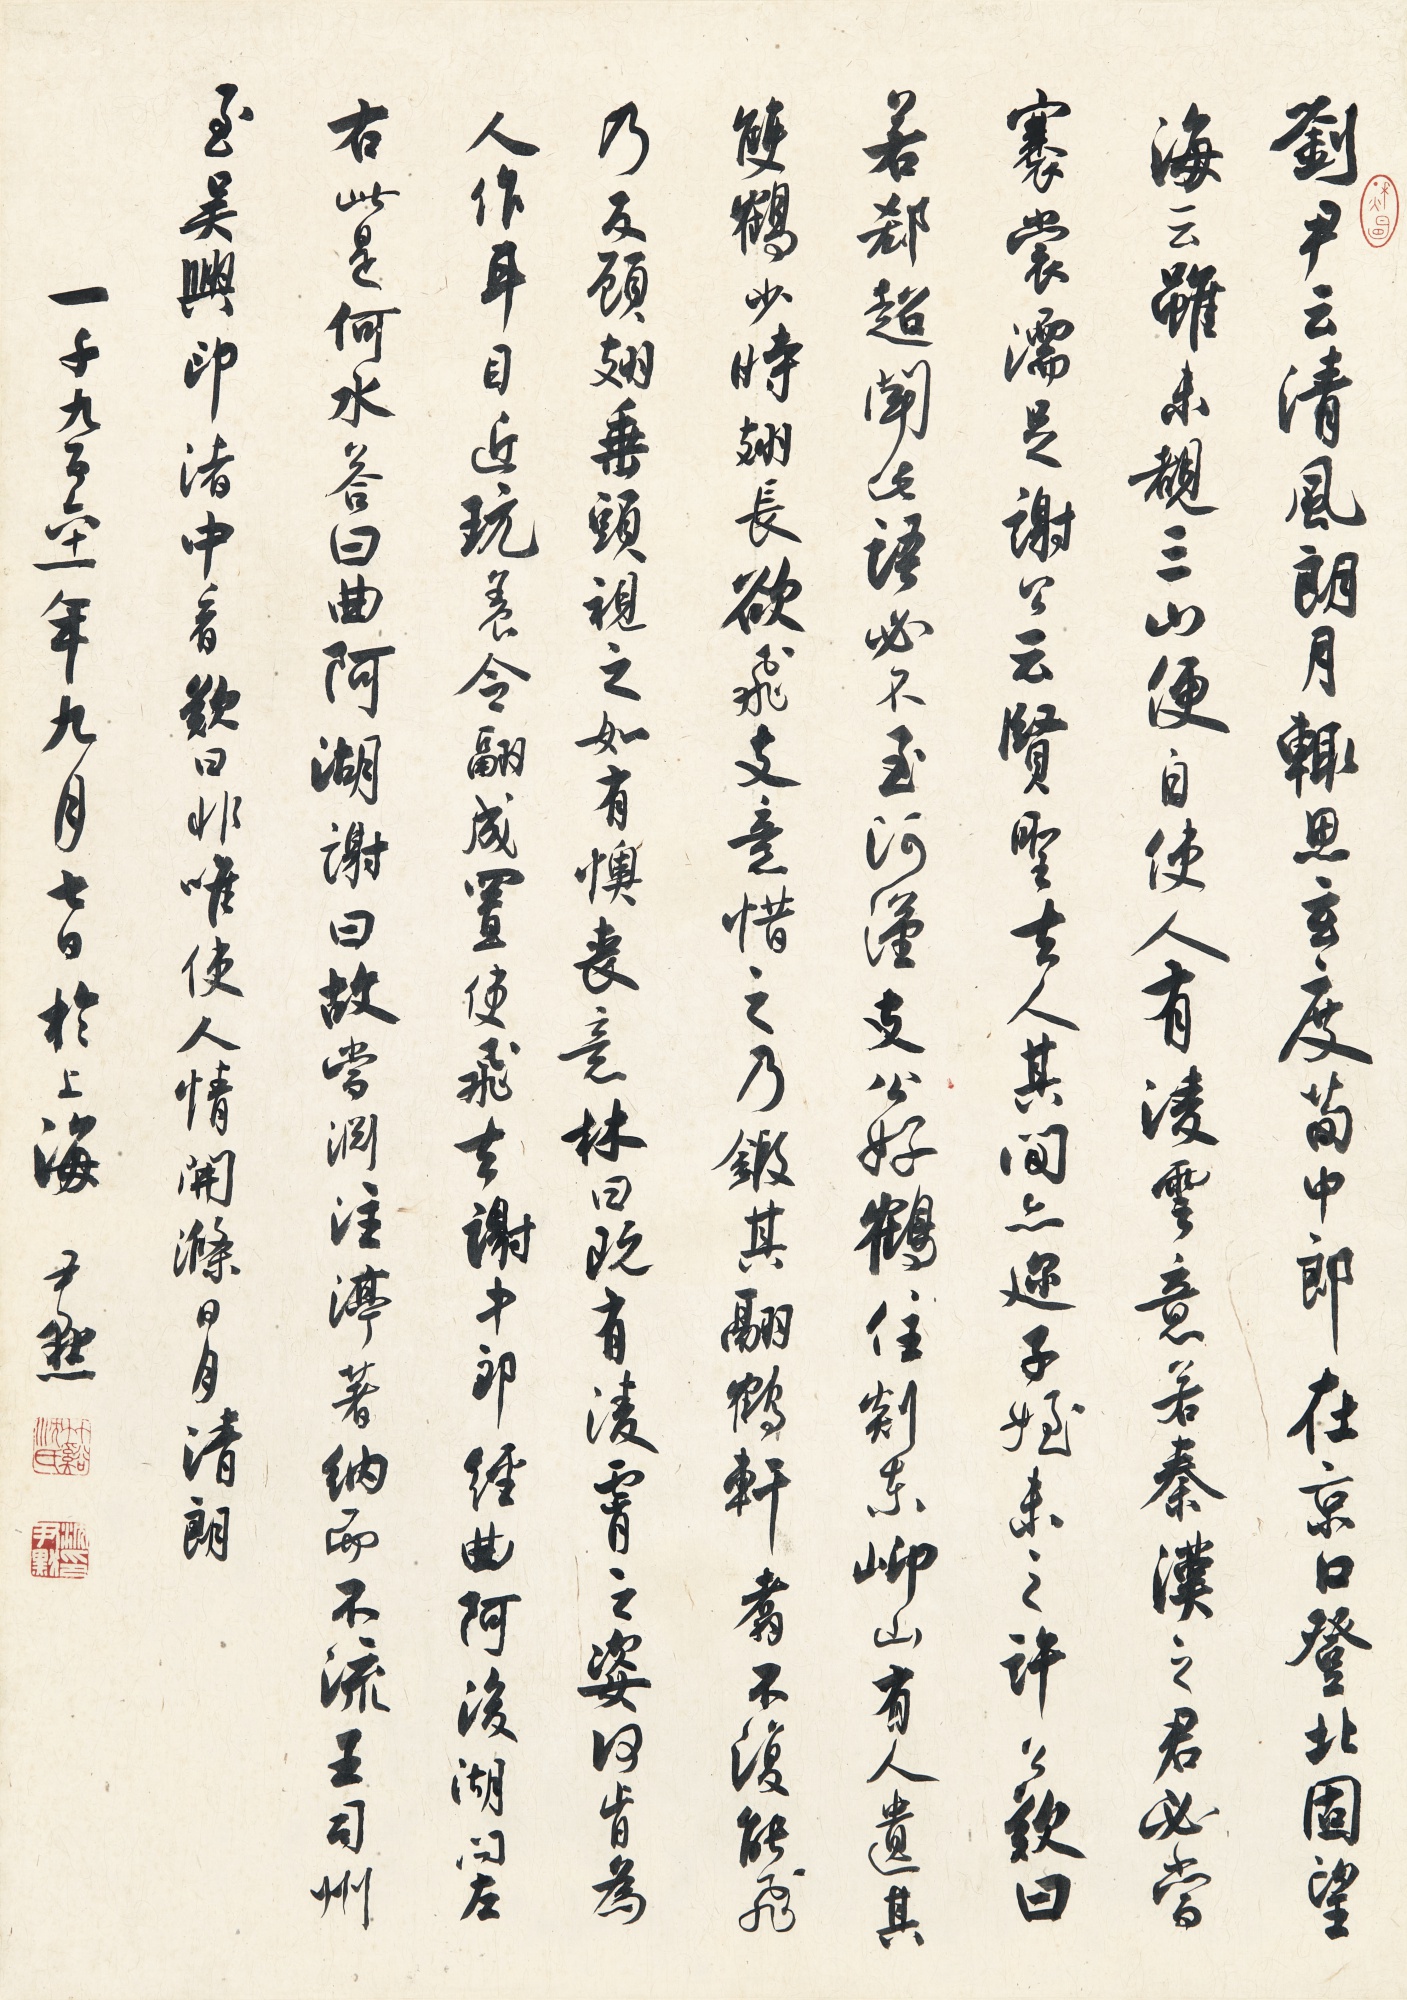 劉尹云清風朗月輒思玄度荀中郎在京口登北固望
海云雖未覩三山便自使人有淩雲意若秦漢之君必當
褰裳濡足謝公云賢聖去人其間亦邇子姪未之許公歎曰
若郗超聞此語必不至河漢支公好鶴住剡東岬山有人遺其
雙鶴少時翅長欲飛支意惜之乃鎩其翮鶴軒翥不復能飛
乃反顧翅垂頭視之如有懊喪意林曰既有淩霄之姿何肯為
人作耳目近玩養令翮成置使飛去謝中郎經曲阿後湖問左
右此是何水答曰曲阿湖謝曰故當淵注渟著納而不流王司州
至吳興印渚中看歎曰非唯使人情開滌日月清朗
一千九百六十一年九月七日於上海 尹默
竹谿沈氏
沈尹默印